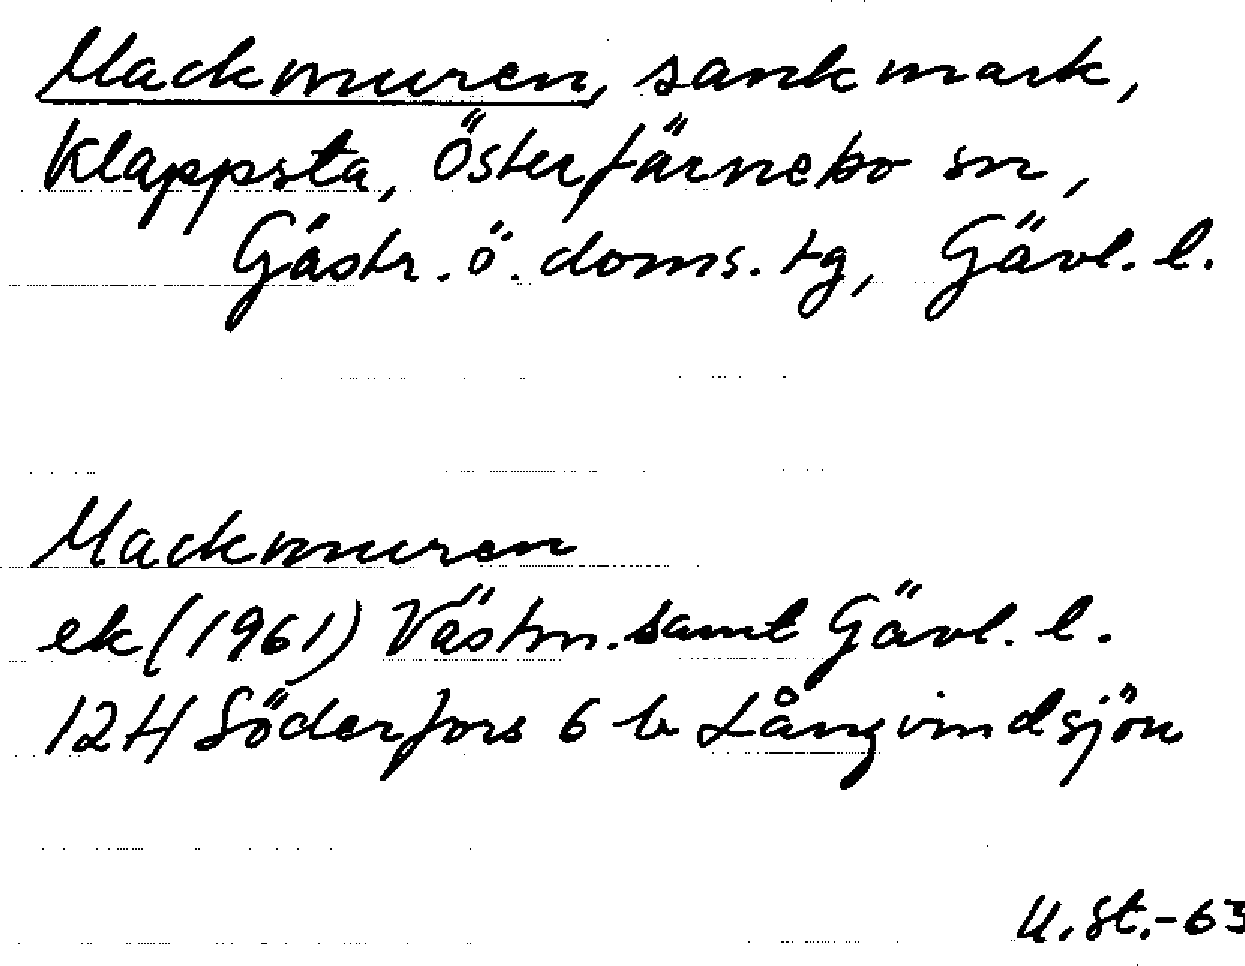 Mackmuren, sankmark,
Klappsta, Österfärnebo sn,
Gästr. ö. doms. tg, Gävl. l.
Mackmuren
ek (1961) Västm. samt Gävl. l.
12H Söderfors 6 b Långvindsjön
U. St. - 63